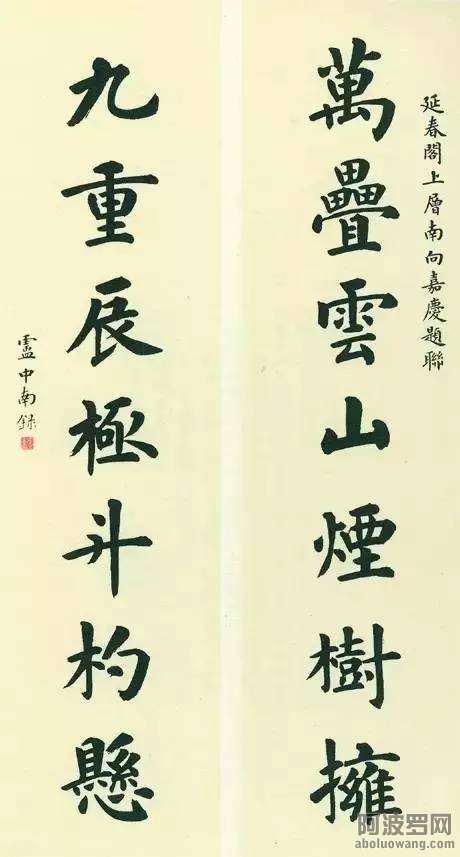 延春閣上層南向嘉慶題聯
萬疊雲山煙樹擁
九重辰極斗杓懸
盧中南録
阿波罗网
aboluowang.com